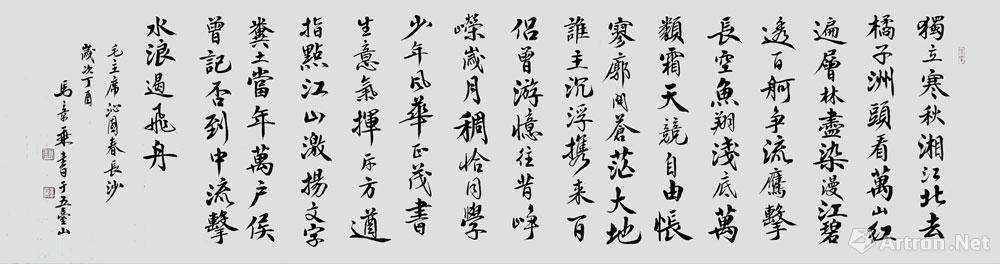 獨立寒秋湘江北去
橘子洲頭看萬山紅
遍層林盡染漫江碧
透百舸争流鷹擊
長空魚翔淺底萬
類霜天競自由悵
寥廓問蒼茫大地
誰主沉浮携来百
侣曾游憶往昔崢
嶸歲月稠恰同學
少年風華正茂書
生意氣揮斥方遒
指點江山激揚文字
糞土當年萬户侯
曾記否到中流擊
水浪遏飛舟
毛主席沁園春長沙
歲次丁酉
馬 乘書于五臺山
Artron.Net